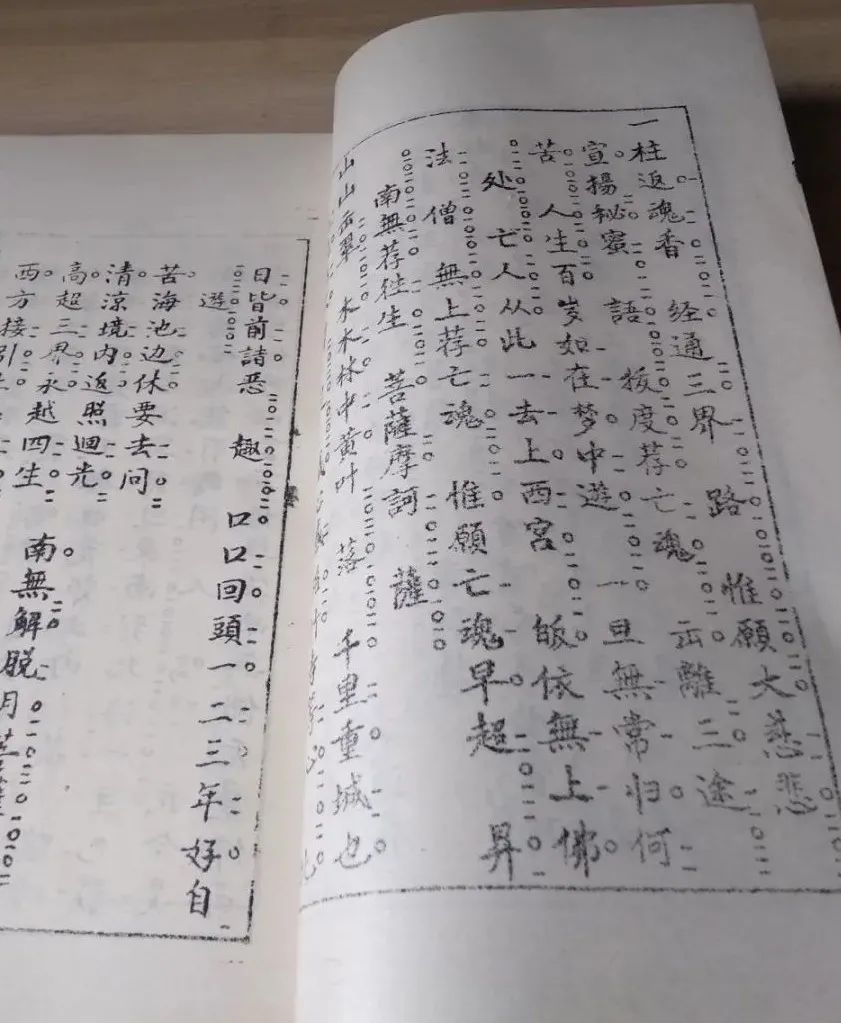 一柱返魂香 经通三界 路 惟願大慈悲
宣揚秘蜜 語 拔度荐亡魂 出離三途
苦 人生百岁如在梦中遊 一旦無常归何
处 亡人从此一去上西宫 皈依無上佛
法僧 無上荐亡魂 惟願亡魂早超 昇
南無荐往生 菩薩摩訶 薩
山山出 木木林中黄叶 落 千里重城也
日皆前詰恶 趣 口口回頭一二三年好自
遊
苦海池边休要去问
清涼境内返照迴光
高超三界永越四生 南無解脱月
西方接引